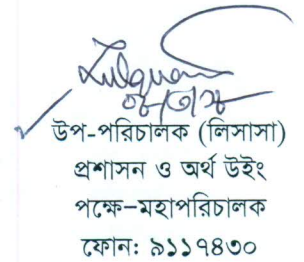 উপ-পরিচালক (লিসাসা)
প্রশাসন ও অর্থ উইং
পক্ষে-মহাপরিচালক
ফোন: ৯১১৭৪৩০